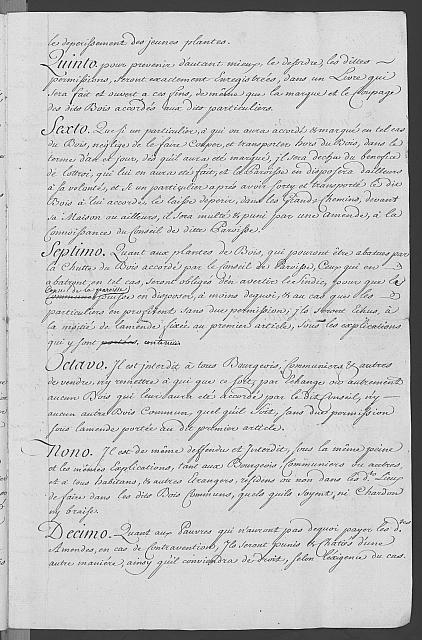 le deperissement des jeunes plantes.
Quinto. pour prevenir d'autant mieux, le desordre, les dittes
permissions, seront exactement Enregistrées, dans un Livre qui
sera fait et ouvert a ces fins, de même que la marque et le Coupage
des dits Bois accordés aux dits particuliers.
Sexto. Que si un particulier, à qui on aura accordé & marqué en tel cas
du Bois, neglige de le faire Couper, et transporter hors du Bois, dans le
terme d'an et jour, dès qu'il aura eté marqué, il sera dechu du benefice
de l'ottroi, qui lui en aura eté fait, et la Paroisse en disposera d'ailleurs
à sa volonté, et si un particulier après avoir sorty et transporté le dit
Bois à lui accordé, le laisse deperir, dans les Grands Chemins, devant
sa Maison ou ailleurs, il sera multé & puni par une amende, à la
Connoissance du Conseil de ditte Paroisse.
Septimo. Quant aux plantes de Bois, qui pourront être abatues par
la Chutte du Bois accordé par le Conseil de Paroisse, Ceux qui en
abatront en tel cas, seront obligés d'en avertir le Sindic, pour que le
Conseil de la paroisse
Communier puisse en disposer, à moins dequoi, & au cas que les
particuliers en profitent sans due permission, Ils seront tenus, à
la moitié de l'amende fixée au premier article, sous les explications
qui y sont portées, contenues
Octavo. Il est interdit à tous Bourgeois, Communiers & autres
de vendre, ny remettre à qui que ce soit, par l'échange ou autrement
aucun Bois qui leur aura eté accordé par le dit Conseil, ny
aucun autre Bois Commun, quel qu'il soit, sans due permission
sous l'amende portée au dit premier article.
Nono. Il est de même deffendu et Interdit, sous la même peine
et les mêmes Explications, tant aux Bourgeois, Communiers ou autres,
et à tous habitans, & autres étrangers, residens ou non dans les d.ts Lieux
de faire dans les dits Bois Communs, quels qu'ils soyent, ni Charbon
ny braise.
Decimo. Quant aux Pauvres qui n'auront pas dequoi payer les d.tes
Amendes, en cas de Contravention, Ils seront punis & Chatiés d'une
autre maniere, ainsy qu'il conviendra de droit, selon l'exigence du cas.